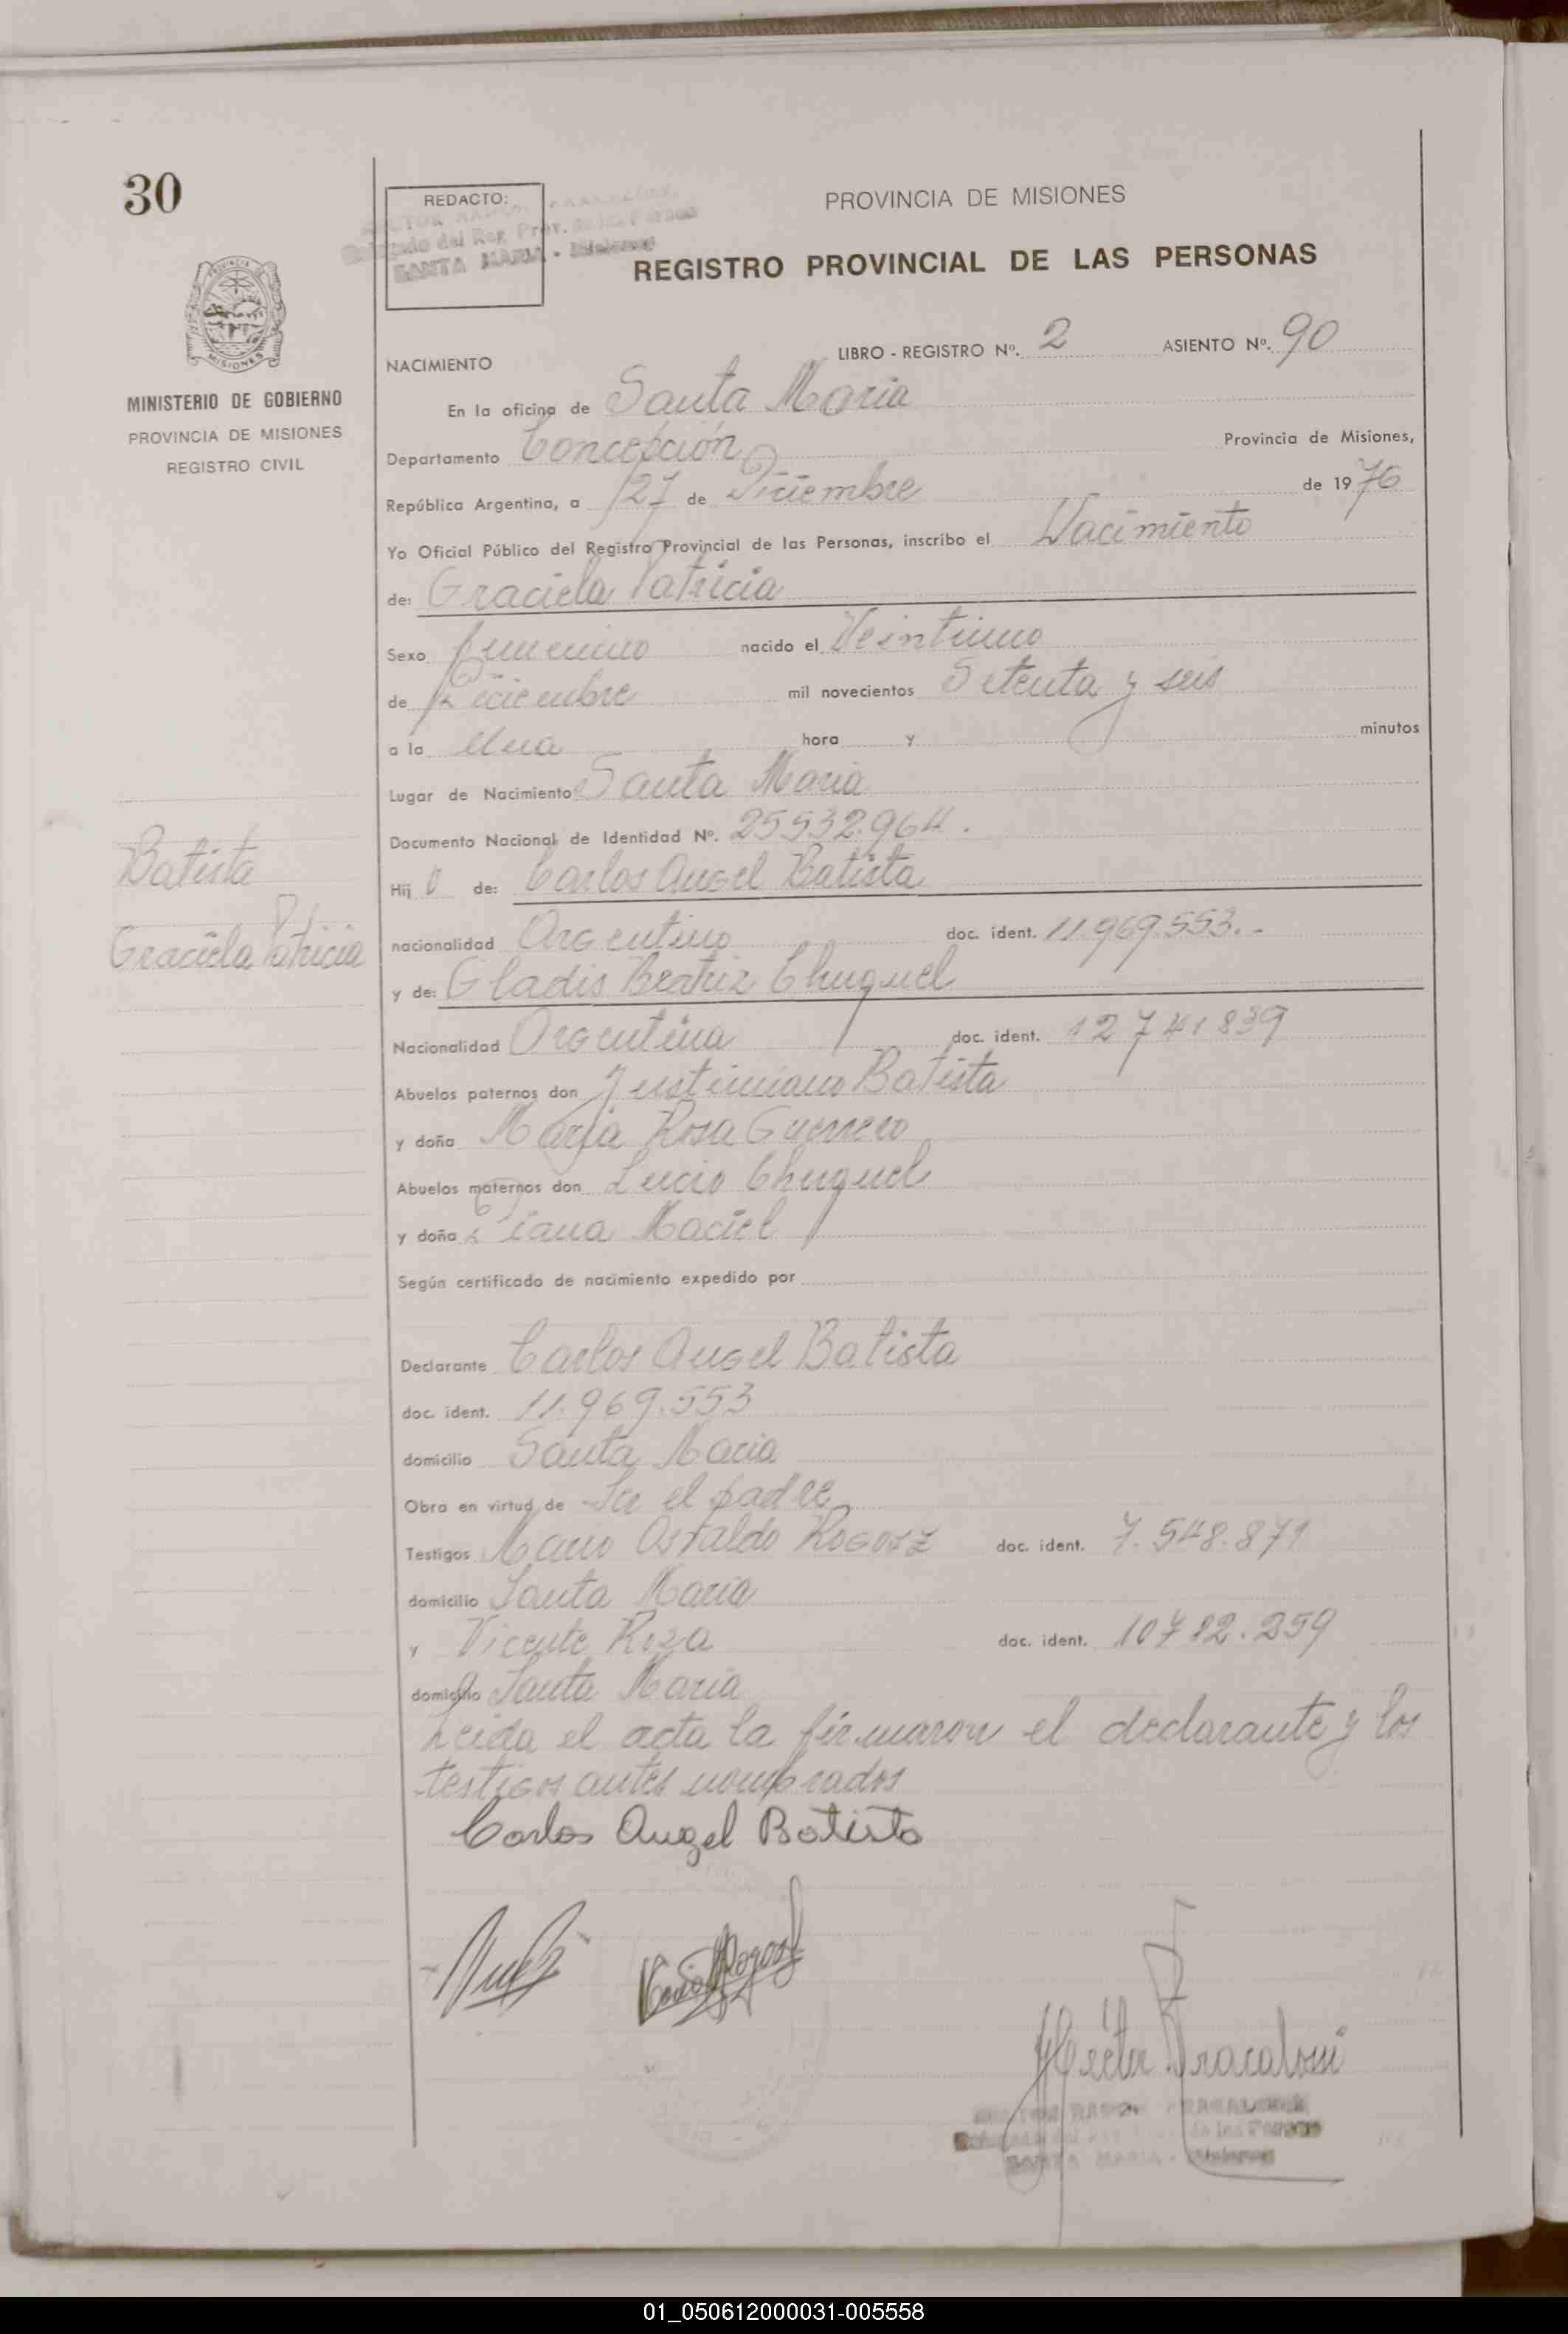 30
REDACTO:
PROVINCIA DE MISIONES
Delegado del Reg. Prov. de las Personas
SANTA MARIA - Misiones
REGISTRO PROVINCIAL DE LAS PERSONAS
PROVINCIA DE
MISIONES
MINISTERIO DE GOBIERNO
PROVINCIA DE MISIONES
REGISTRO CIVIL
NACIMIENTO LIBRO - REGISTRO Nº. 2 ASIENTO Nº. 90
En la oficina de Santa Maria
Departamento Concepción Provincia de Misiones,
República Argentina, a 27 de Diciembre de 1976
Yo Oficial Público del Registro Provincial de las Personas, inscribo el Nacimiento
de: Graciela Patricia
Sexo femenino nacido el Veintiuno
de Diciembre mil novecientos Setenta y seis
a la Una hora y minutos
Lugar de Nacimiento Santa Maria
Documento Nacional de Identidad Nº. 25532.964.
Batista
Graciela Patricia
Hij de: Carlos Angel Batista
nacionalidad Argentino doc. ident. 11.969.553.-
y de: Gladis Beatriz Chuquel
Nacionalidad Argentina doc. ident. 12741839
Abuelos paternos don Justiniano Batista
y doña Maria Rosa Guerrero
Abuelos maternos don Lucio Chuquel
y doña Liana Maciel
Según certificado de nacimiento expedido por
Declarante Carlos Angel Batista
doc. ident. 11.969.553
domicilio Santa Maria
Obra en virtud de Ser el padre
Testigos Mario Osvaldo Rogosz doc. ident. 7.548.871
domicilio Santa Maria
y Vicente Roza doc. ident. 10782.259
domicilio Santa Maria
Leida el acta la firmaron el declarante y los
testigos antes nombrados
Carlos Angel Batista
Hector Fracalossi
SANTA MARIA - Misiones
01_050612000031-005558